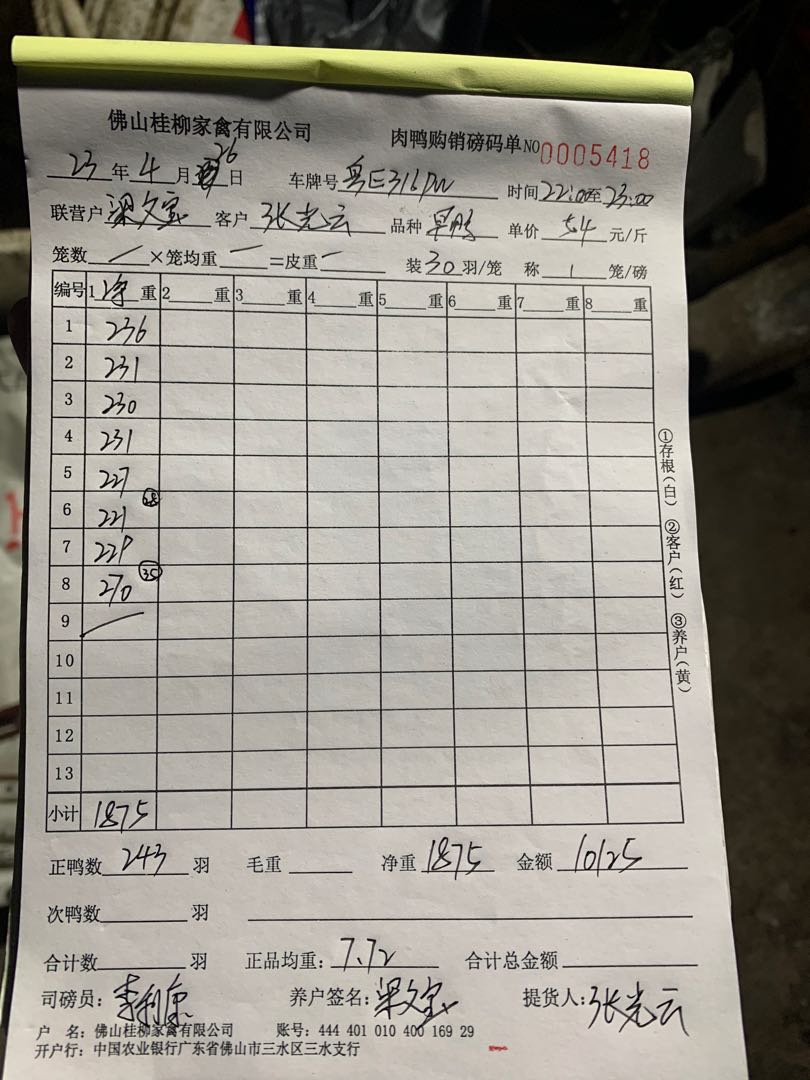 佛山桂柳家禽有限公司 肉鸭购销磅码单NO0005418
23年4月26日 车牌号 粤E316 时间22:00至23:00
联营户梁文宝 客户 张光云 品种 单价 5.4 元/斤
笼数 × 笼均重 = 皮重 装30羽/笼 称 1 笼/磅
编号 1 净 重 2 重 3 重 4 重 5 重 6 重 7 重 8 重
1 236
2 231
3 230
4 231
5 227
6 221 28
7 229
8 270 35
9
10
11
12
13
小计 1875
正鸭数 243 羽 毛重 净重 1875 金额 10125
次鸭数 羽
合计数 羽 正品均重:7.72 合计总金额
司磅员: 李利康 养户签名: 梁文宝 提货人: 张光云
户 名:佛山桂柳家禽有限公司 账号:444 401 010 400 169 29
开户行:中国农业银行广东省佛山市三水区三水支行
①存根(白) ②客户(红) ③养户(黄)